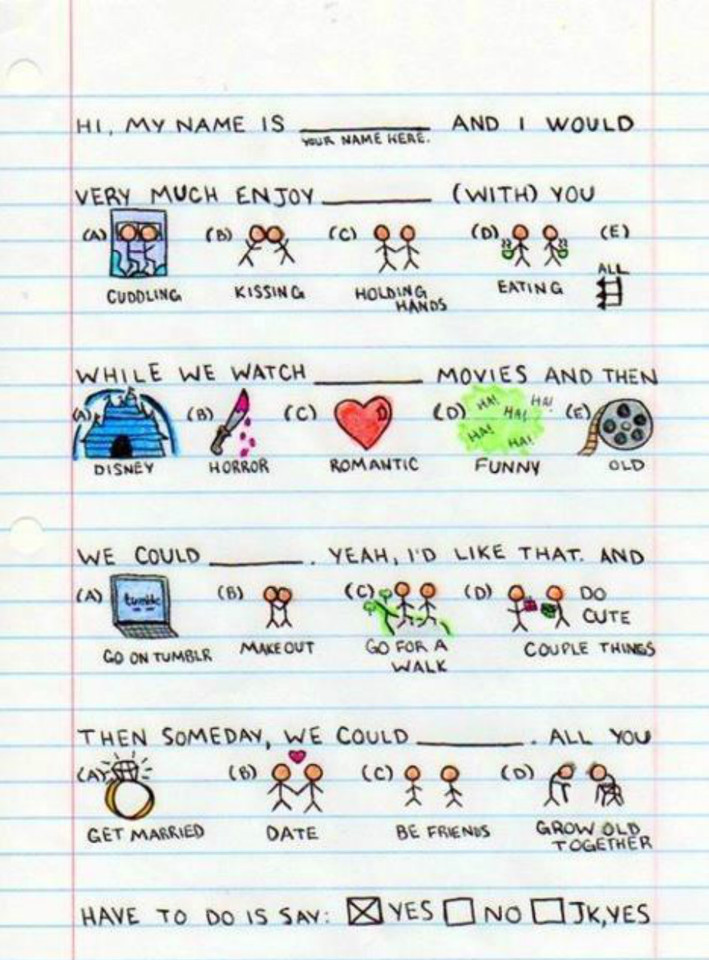 HI, MY NAME IS __________ AND I WOULD
YOUR NAME HERE.
VERY MUCH ENJOY ________ (WITH) YOU
(A) (B) (C) (D) (E)
ALL
CUDDLING KISSING HOLDING HANDS EATING
WHILE WE WATCH ________ MOVIES AND THEN
(A) (B) (C) (D) HA! HA! HA! HA! HA! (E)
DISNEY HORROR ROMANTIC FUNNY OLD
WE COULD ________. YEAH, I'D LIKE THAT. AND
(A) tumblr (B) (C) (D) DO
CUTE
GO ON TUMBLR MAKEOUT GO FOR A WALK COUPLE THINGS
THEN SOMEDAY, WE COULD ________. ALL YOU
(A) (B) (C) (D)
GET MARRIED DATE BE FRIENDS GROW OLD TOGETHER
HAVE TO DO IS SAY: ☒ YES ☐ NO ☐ JK, YES